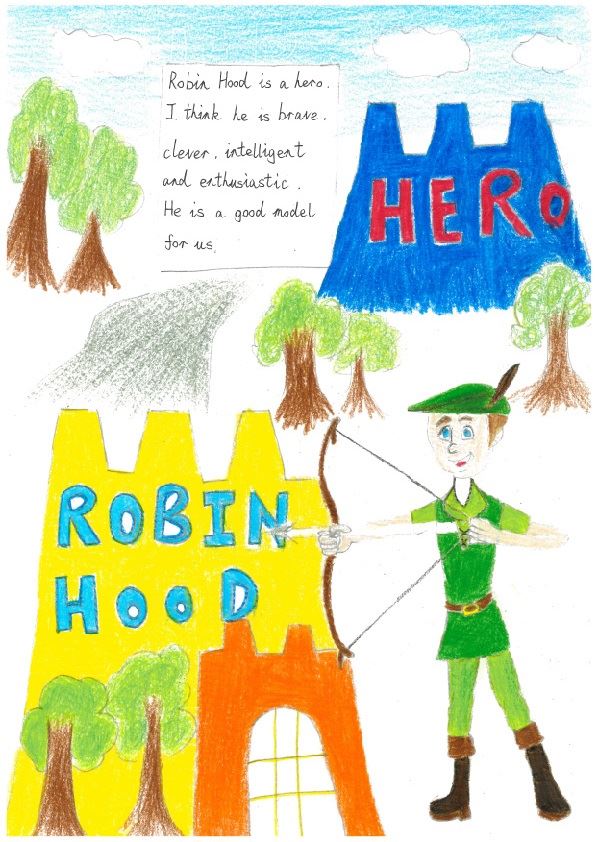 Robin Hood is a hero.
I think he is brave,
clever, intelligent
and enthusiastic.
He is a good model
for us.
HERO
ROBIN
HOOD